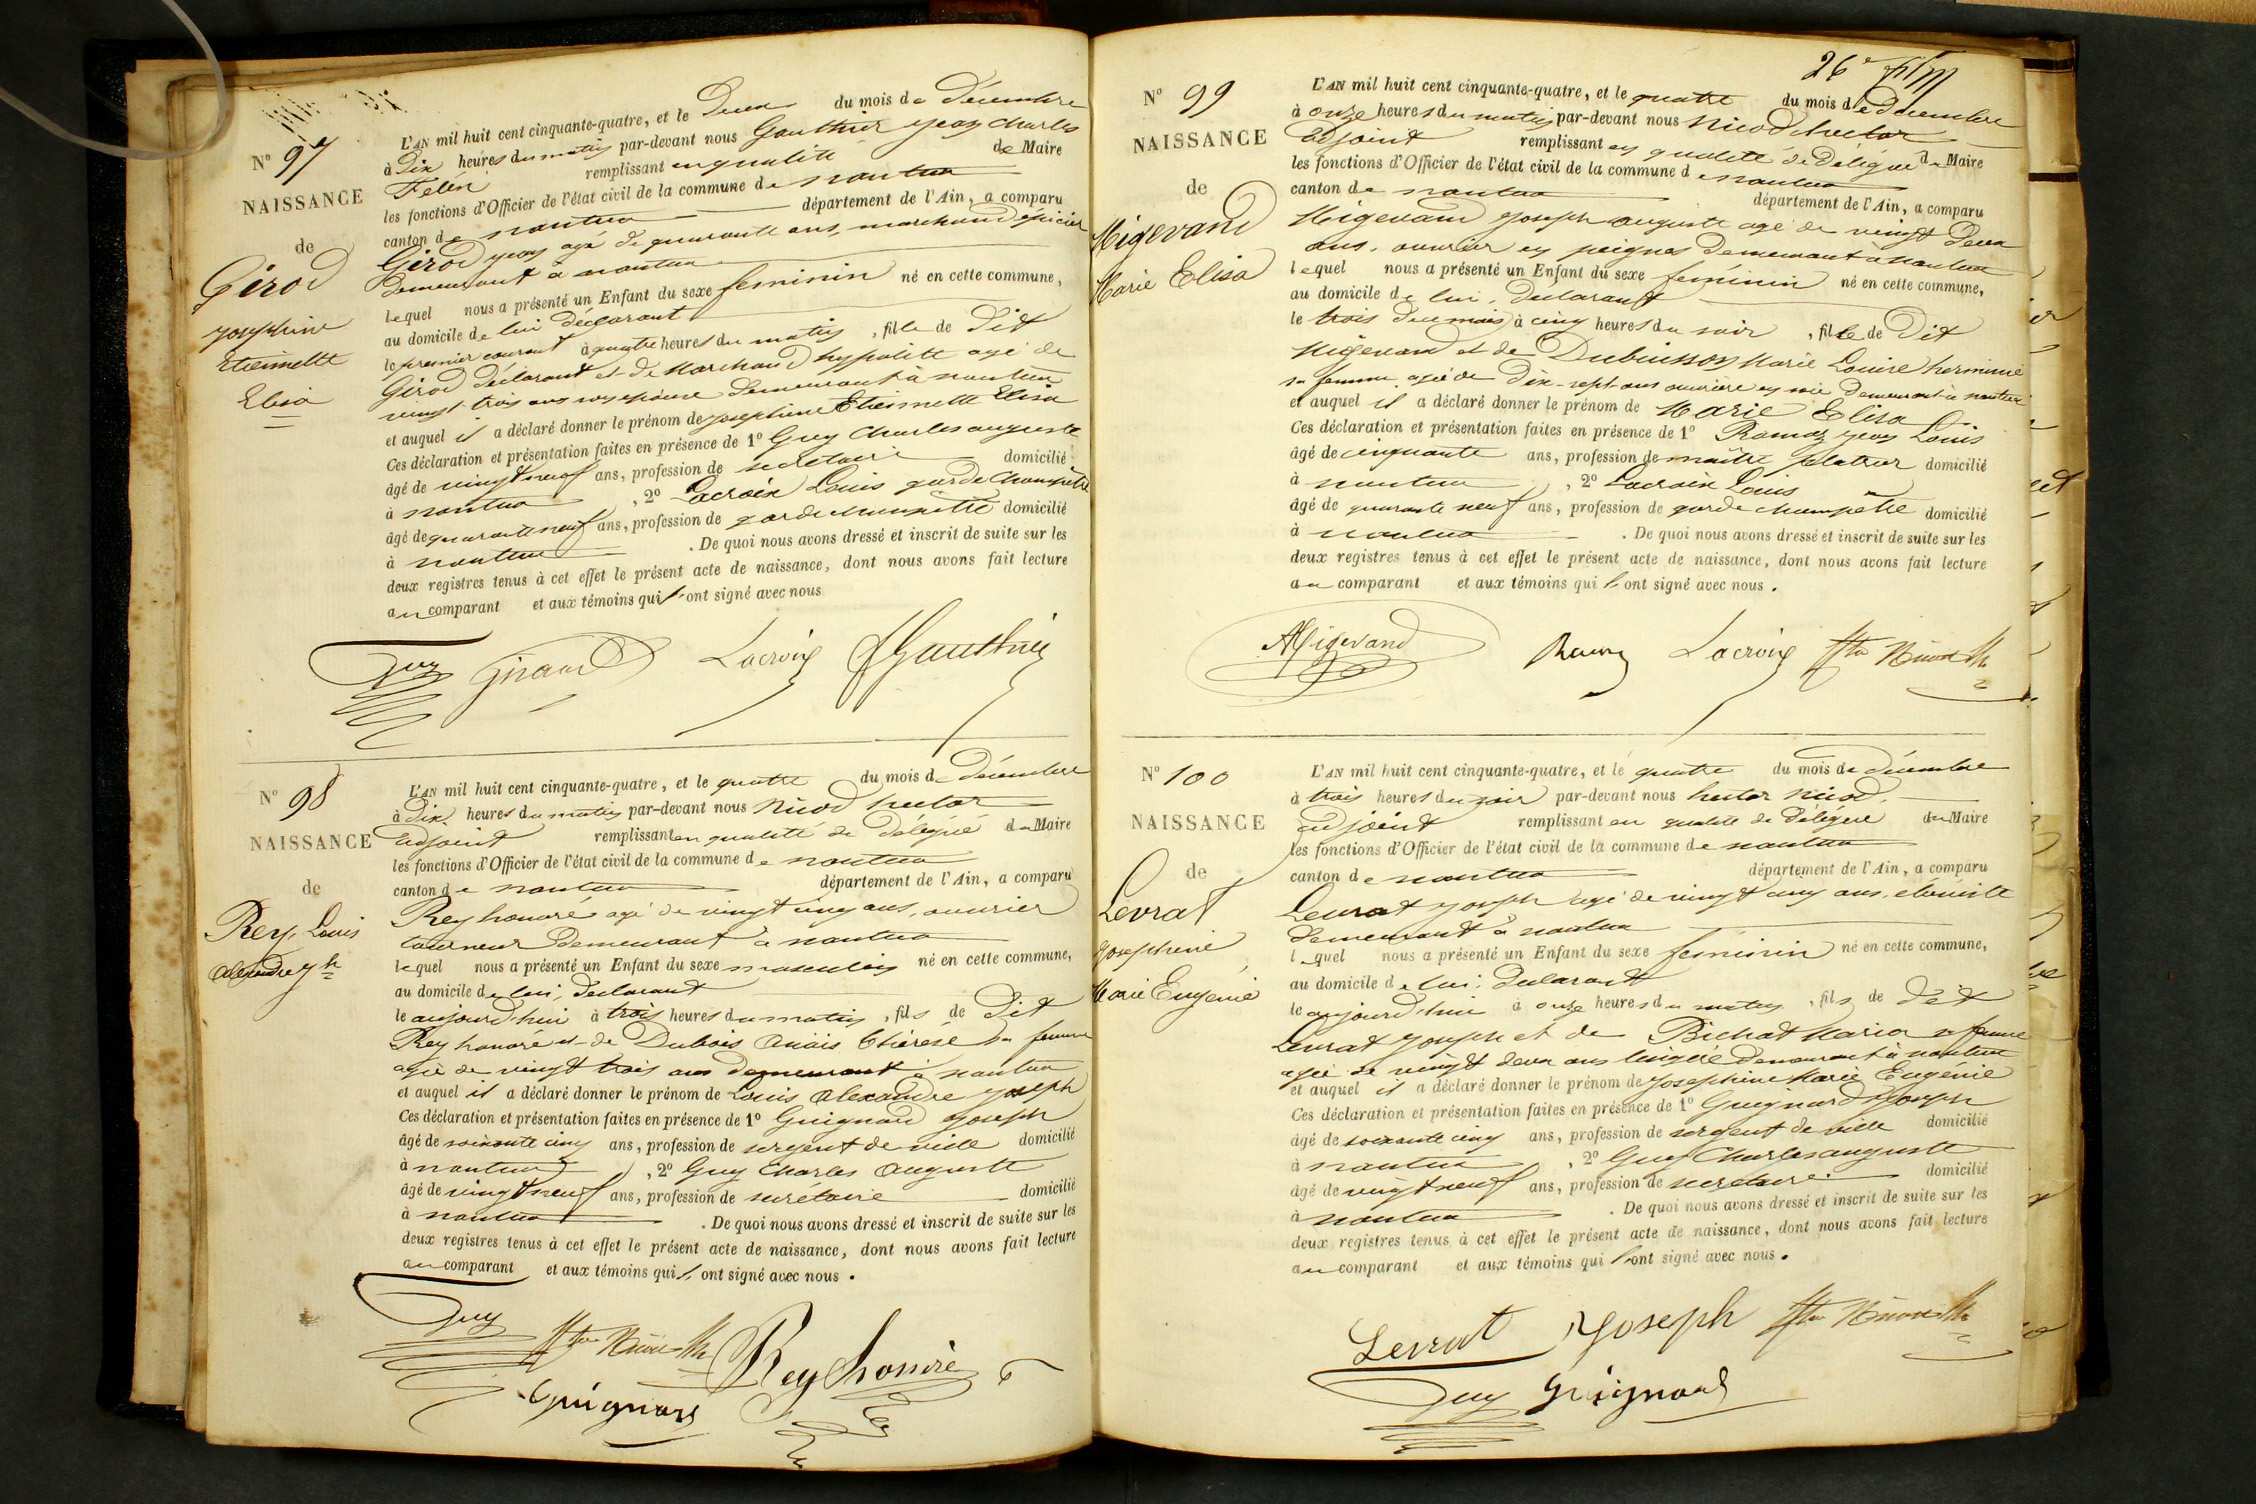 N° 97
NAISSANCE
de
Girod
Josephine
Etiennette
Elisa
L'AN mil huit cent cinquante-quatre, et le Deux du mois de Décembre
à Dix heures du matin par-devant nous Gauthier Jean Charles
Felix remplissant en qualité de Maire
les fonctions d'Officier de l'état civil de la commune de nantua
canton de nantua département de l'Ain, a comparu
Girod Jean agé de quarante ans, marchand épicier
Demeurant à nantua
lequel nous a présenté un Enfant du sexe feminin né en cette commune,
au domicile de lui déclarant
le premier courant à quatre heures du matin, fille de Dit
Girod déclarant et de Marchand hyppolite agé de
vingt trois ans son épouse Demeurant à nantua
et auquel il a déclaré donner le prénom de Josephine Etiennette Elisa
Ces déclaration et présentation faites en présence de 1° Guy Charles auguste
âgé de vingt neuf ans, profession de secretaire domicilié
à nantua, 2° Lacroix Louis garde Champêtre
âgé de quarante neuf ans, profession de garde champêtre domicilié
à nantua. De quoi nous avons dressé et inscrit de suite sur les
deux registres tenus à cet effet le présent acte de naissance, dont nous avons fait lecture
au comparant et aux témoins qui l'ont signé avec nous
Guy Giraud Lacroix Gauthier
N° 98
NAISSANCE
de
Rey, Louis
Alexandre Jh
L'AN mil huit cent cinquante-quatre, et le quatre du mois de Décembre
à Dix heures du matin par-devant nous Nicod hector
adjoint remplissant en qualité de Délégué du Maire
les fonctions d'Officier de l'état civil de la commune de nantua
canton de nantua département de l'Ain, a comparu
Rey honoré agé de vingt cinq ans, ouvrier
tourneur Demeurant à nantua
lequel nous a présenté un Enfant du sexe masculin né en cette commune,
au domicile de lui, declarant
le aujourd'hui à trois heures du matin, fils de Dit
Rey honoré et de Dubois Anaïs Thérèse sa femme
agée de vingt trois ans demeurant à nantua
et auquel il a déclaré donner le prénom de Louis Alexandre Joseph
Ces déclaration et présentation faites en présence de 1° Guignard Joseph
âgé de soixante cinq ans, profession de sergent de ville domicilié
à nantua, 2° Guy Charles Auguste
âgé de vingt neuf ans, profession de secrétaire domicilié
à nantua. De quoi nous avons dressé et inscrit de suite sur les
deux registres tenus à cet effet le présent acte de naissance, dont nous avons fait lecture
au comparant et aux témoins qui l'ont signé avec nous.
Guy Hor Nicod Rey honoré
Guignard
26e film
N° 99
NAISSANCE
de
Migevand
Marie Elisa
L'AN mil huit cent cinquante-quatre, et le quatre du mois de Décembre
à onze heures du matin par-devant nous Nicod hector
adjoint remplissant en qualité de Délégué du Maire
les fonctions d'Officier de l'état civil de la commune de nantua
canton de nantua département de l'Ain, a comparu
Migevand Joseph auguste agé de vingt deux
ans, ouvrier en peignes Demeurant à nantua
lequel nous a présenté un Enfant du sexe feminin né en cette commune,
au domicile de lui, declarant
le trois du mois à cinq heures du soir, fille de Dit
Migevand et de Dubuisson Marie Louise herminie
sa femme agée de Dix-sept ans ouvrière en soie Demeurant à nantua
et auquel il a déclaré donner le prénom de Marie Elisa
Ces déclaration et présentation faites en présence de 1° Ramaz Jean Louis
âgé de cinquante ans, profession de maître platrier domicilié
à nantua, 2° Lacroix Louis
âgé de quarante neuf ans, profession de garde champêtre domicilié
à nantua. De quoi nous avons dressé et inscrit de suite sur les
deux registres tenus à cet effet le présent acte de naissance, dont nous avons fait lecture
au comparant et aux témoins qui l'ont signé avec nous.
AMigevand Ramaz Lacroix Hor Nicod
N° 100
NAISSANCE
de
Levrat
Josephine
Marie Eugenie
L'AN mil huit cent cinquante-quatre, et le quatre du mois de décembre
à trois heures du soir par-devant nous hector Nicod,
adjoint remplissant en qualité de Délégué du Maire
les fonctions d'Officier de l'état civil de la commune de nantua
canton de nantua département de l'Ain, a comparu
Levrat Joseph agé de vingt cinq ans, ébéniste
Demeurant à nantua
lequel nous a présenté un Enfant du sexe feminin né en cette commune,
au domicile de lui, declarant
le aujourd'hui à onze heures du matin, fils de Dit
Levrat Joseph et de Bichat Maria sa femme
agée de vingt deux ans lingère Demeurant à nantua
et auquel il a déclaré donner le prénom de Josephine Marie Eugénie
Ces déclaration et présentation faites en présence de 1° Guignard Joseph
âgé de soixante cinq ans, profession de sergent de ville domicilié
à nantua, 2° Guy Charles auguste
âgé de vingt neuf ans, profession de secretaire domicilié
à nantua. De quoi nous avons dressé et inscrit de suite sur les
deux registres tenus à cet effet le présent acte de naissance, dont nous avons fait lecture
au comparant et aux témoins qui l'ont signé avec nous.
Levrat Joseph Hor Nicod
Guy Guignard